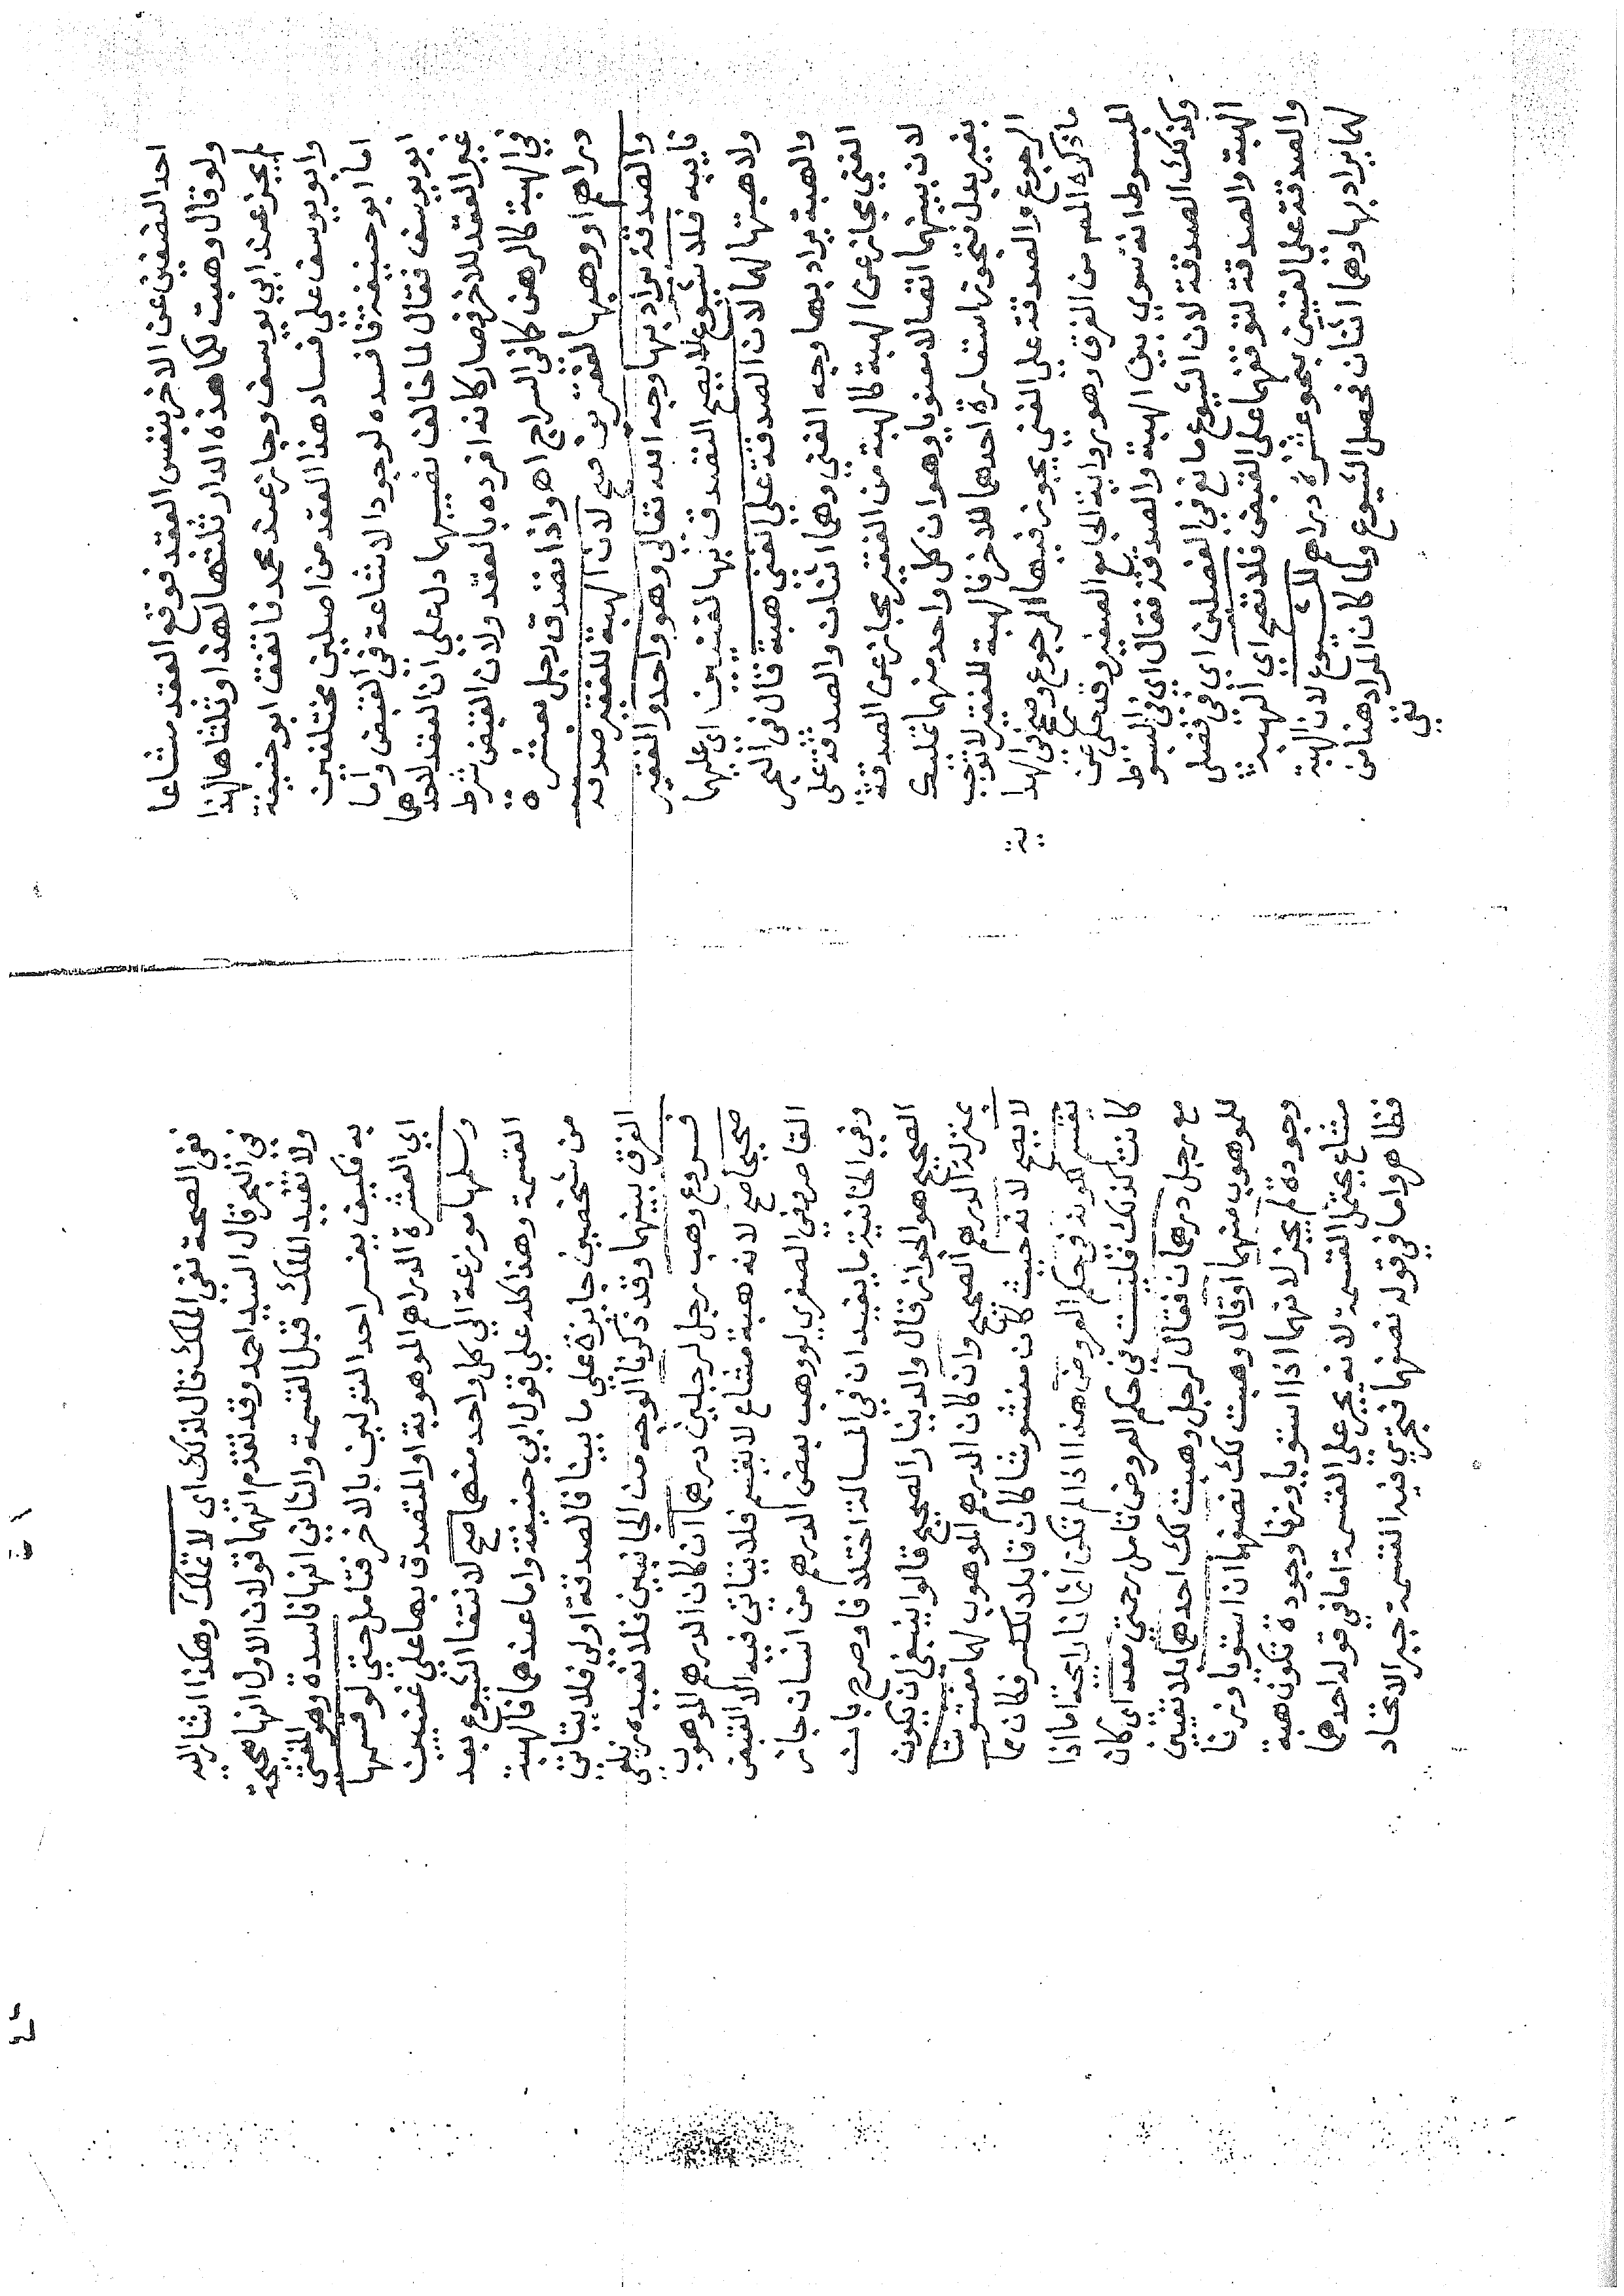 احد النصفين عن الاخر بنفس العقد فوقع العقد مشاعا
ولو قال وهبت لكما هذه الدار ثلثها لهذا وثلثاها لهذا
لم يجز عند ابي يوسف وجاز عند محمد فاتفق ابو حنيفة
وابو يوسف على فساد هذا العقد من اصلين مختلفين
اما ابو حنيفة فافسده لوجود الاشاعة في القبض واما
ابو يوسف فقال لما خالف نصيبهما دل على ان العقد لاحدهما
غير العقد للاخر فصار كانه افرده بالعقد ولان القبض شرط
في الهبة كالرهن كما في السراج اه واذا تصدق رجل بعشرة
دراهم او وهبها لفقيرين صح لان الهبة للفقير صدقه
والصدقة يراد بها وجه الله تعالى وهو واحد والفقير
نايبه فلا شيوع لا يصح التصدق بها لغنيين اى عليهما
ولا هبتها لهما لان الصدقة على الغنى هبة قال فى البحر
والهبة يراد بها وجه الغني وهما اثنان والصدقة على
الغني مجاز عن الهبة كالهبة من الفقير مجاز عن الصدقة
لان بينهما اتصالا معنويا وهو ان كل واحد منهما تمليك
بغير بدل فتجوز استعارة احدهما للاخر فالهبة للفقير لا توجب
الرجوع والصدقة على الغني يجوز فيها الرجوع وصح في الهدا
ماذكره المص من الفرق وهو رواية الجامع الصغير وقد حكى عن
المبسوط انه سوي بين الهبة والصدقة فقال اي في المبسوط
وكذلك الصدقة لان الشيوع مانع في الفصلين اى في فصلى
الهبة والصدقة لتوقفهما على القبض فلا تصح اى الهبة
والصدقة على الغنيين بنحو عشرة دراهم للشيوع لان الهبة
لهما يراد بها وهما اثنان فحصل الشيوع ولما كان المراد هنا من
نفي
نفى الصحة نفى الملك قال لذلك اى لا تملك وهكذا اشار اليه
في البحر قال السيد احمد وقد تقدم انهما قولان الاول انها صحيحة
ولا تفيد الملك قبل القسمة والثاني انها فاسدة وهو المفتى
به فكيف يفسر احد القولين بالاخر فتامل حتي لو قسمها
اي العشرة الدراهم الموهوبة او المتصدق بها على غنيين
وسلمها موزعة الي كل واحد منهما صح لانتفا الشيوع بعد
القسمة وهذا كله على قول ابي حنيفة واما عندهما فالهبة
من شخصين جايزة على ما بينا فالصدقة اولى فلا يتاتى
الفرق بينهما وقد ذكرنا الوجه من الجانبين فلا نعيده زيلعى
فروع وهب رجل لرجلين درهما ان كان الدرهم الموهوب
صحيحا صح لانه هبة مشاع لا تقسم فلا يتاتي فيه الا القبض
القاصر وفي الصغرى لو وهب بعض الدرهم من انسان جاز
وفي الخانية ما يفيد ان في المسالة اختلافا وصرح بان
الصحيح هو الجواز قال والدينار الصحيح قالوا ينبغى ان يكون
بمنزلة الدرهم الصحيح وان كان الدرهم الموهوب لهما مغشوشا
لا يصح لانه حيث كان مغشوشا كان قابلا للكسر فكان مما
تقسم لكونه في حكم العروض هذا اذا لم تكن اثمانا رايجة اما اذا
كانت كذلك فليست في حكم العروض تامل رحمتي معه اى كان
مع رجل درهمان فقال لرجل وهبت لك احدهما بلا تعيين
للموهوب منهما او قال وهبت لك نصفهما ان استويا وزنا
وجودة لم يجز لانهما اذا استويا وزنا وجودة تكون هبة
مشاع يحتمل القسمة لانه يجري على القسمة اما في قوله احدهما
فظاهر واما في قوله نصفهما فتجري فيه القسمة جبر الاتحاد